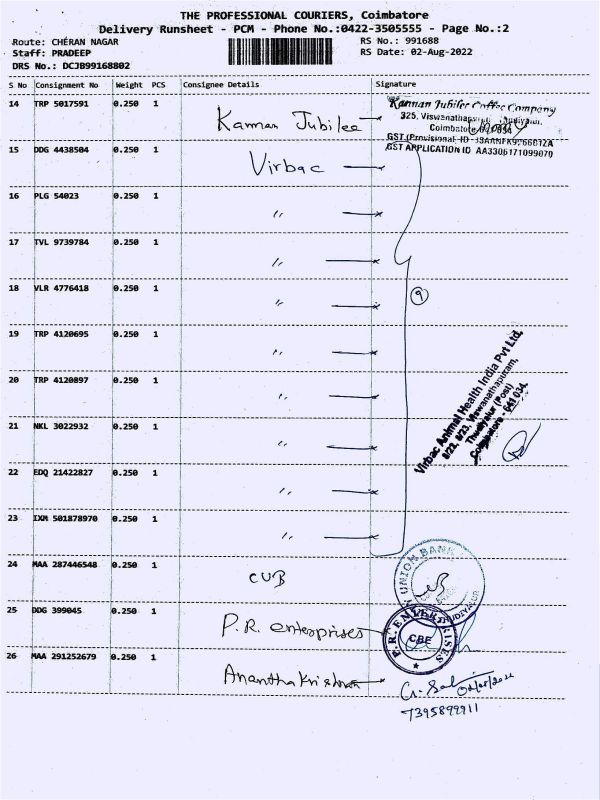 THE PROFESSIONAL COURIERS, Coimbatore
Delivery Runsheet - PCM - Phone No.:0422-3505555 - Page No.:2
Route: CHERAN NAGAR
Staff: PRADEEP
DRS No.: DCJB99168802
RS No.: 991688
RS Date: 02-Aug-2022
S No Consignment No Weight PCS Consignee Details Signature
14 TRP 5017591 0.250 1 Kannan Jubilee
Kannan Jubilee Coffee Company
325, Viswanathapuram
Coimbatore
GST (Provisional) ID
GST APPLICATION ID AA3306171099070
15 DDG 4438504 0.250 1 Virbac
16 PLG 54023 0.250 1 "
17 TVL 9739784 0.250 1 "
18 VLR 4776418 0.250 1 "
9
19 TRP 4120695 0.250 1 "
20 TRP 4120897 0.250 1 "
21 NKL 3022932 0.250 1 "
Virbac Animal Health India Pvt Ltd,
6/23, 8/23, Viswanathapuram,
Thudiyalur (Post)
Coimbatore - 641 034.
22 EDQ 21422827 0.250 1 "
23 IXM 501878970 0.250 1 "
24 MAA 287446548 0.250 1 CUB
UNION BANK
25 DDG 399045 0.250 1 P.R. enterprises
P.R. ENTERPRISES
CBE
26 MAA 291252679 0.250 1 Anantha Krishnan
7395899911